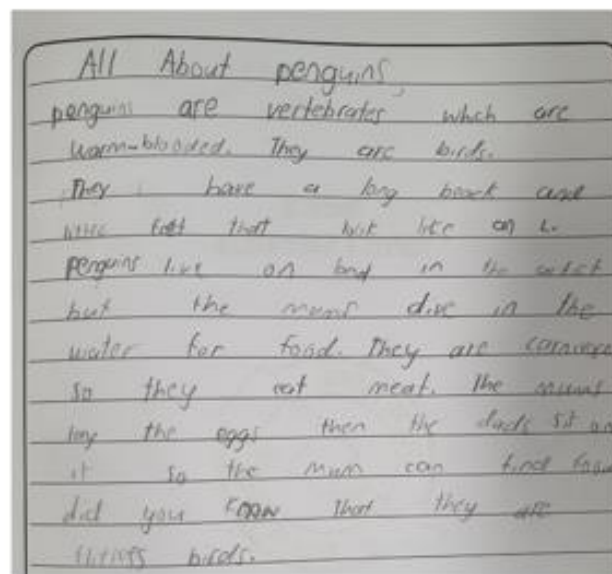 All About penguins,
penguins are vertebrates which are
warm-blooded. They are birds.
They have a long beack and
feet that look like an L.
penguins live on land in the
but the mums dive in the
water for food. They are carnivore
so they eat meat. The mums
lay the eggs then the dads sit on
it so the mum can find food
did you know that they are
birds.